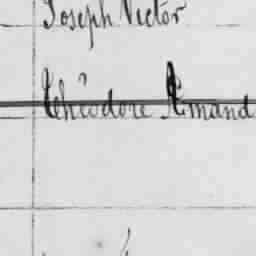 Joseph Victor
Théodore Amand